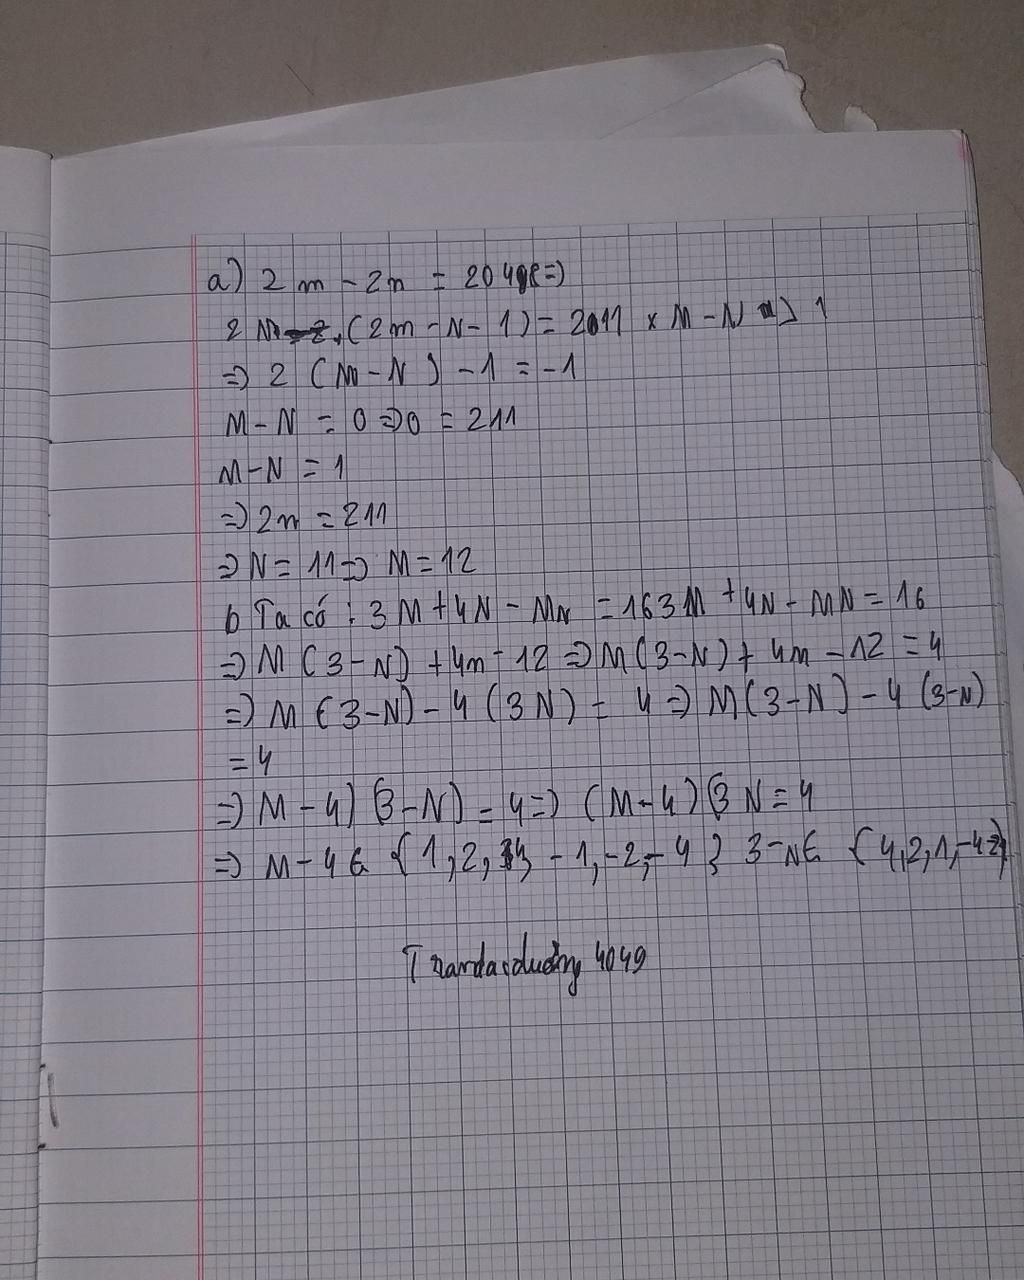 a) 2 m - 2n = 2048 =>
2 N (2m - N - 1) = 2011 x M - N => 1
=> 2 (M - N) - 1 = -1
M - N = 0 => 0 = 211
M - N = 1
=> 2n = 211
=> N = 11 => M = 12
b Ta có : 3M + 4N - MN = 163M + 4N - MN = 16
=> M (3 - N) + 4m - 12 => M (3 - N) + 4m - 12 = 4
=> M (3 - N) - 4 (3 N) = 4 => M (3 - N) - 4 (3 - N)
= 4
=> M - 4) (3 - N) = 4 => (M - 4) (3 N = 4
=> M - 4 ∈ {1, 2, 4, - 1, -2, - 4 } 3 - N ∈ {4, 2, 1, -4 2}
4049